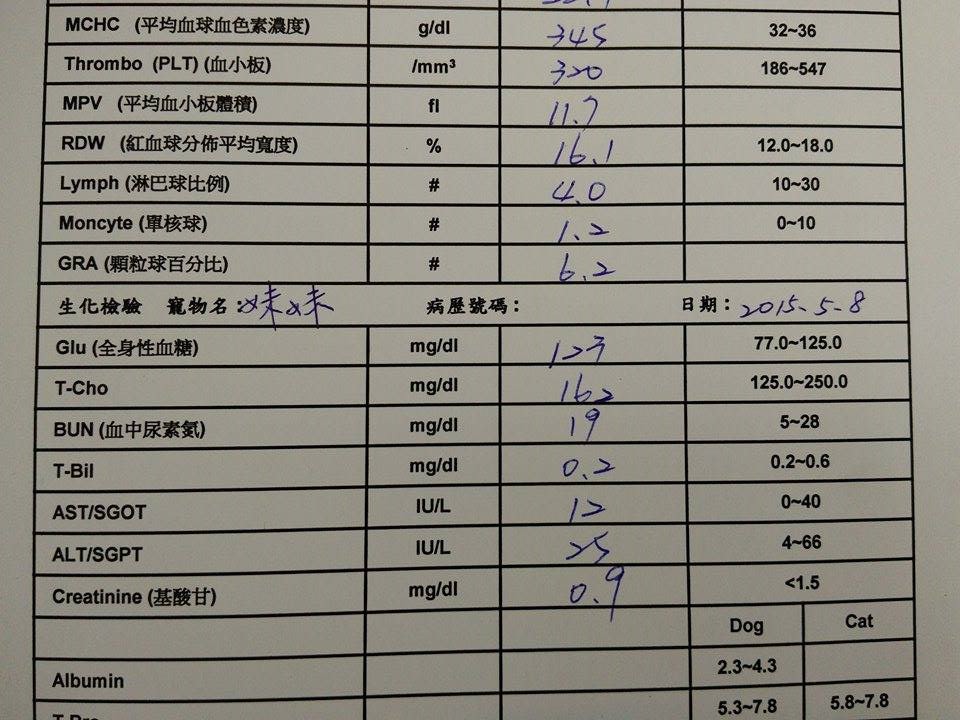 MCHC (平均血球血色素濃度) g/dl 345 32~36
Thrombo (PLT) (血小板) /mm³ 320 186~547
MPV (平均血小板體積) fl 11.7
RDW (紅血球分佈平均寬度) % 16.1 12.0~18.0
Lymph (淋巴球比例) # 4.0 10~30
Moncyte (單核球) # 1.2 0~10
GRA (顆粒球百分比) # 6.2
生化檢驗 寵物名:妹妹 病歷號碼: 日期: 2015.5.8
Glu (全身性血糖) mg/dl 123 77.0~125.0
T-Cho mg/dl 162 125.0~250.0
BUN (血中尿素氮) mg/dl 19 5~28
T-Bil mg/dl 0.2 0.2~0.6
AST/SGOT IU/L 12 0~40
ALT/SGPT IU/L 25 4~66
Creatinine (基酸甘) mg/dl 0.9 <1.5
Dog Cat
Albumin 2.3~4.3
5.3~7.8 5.8~7.8